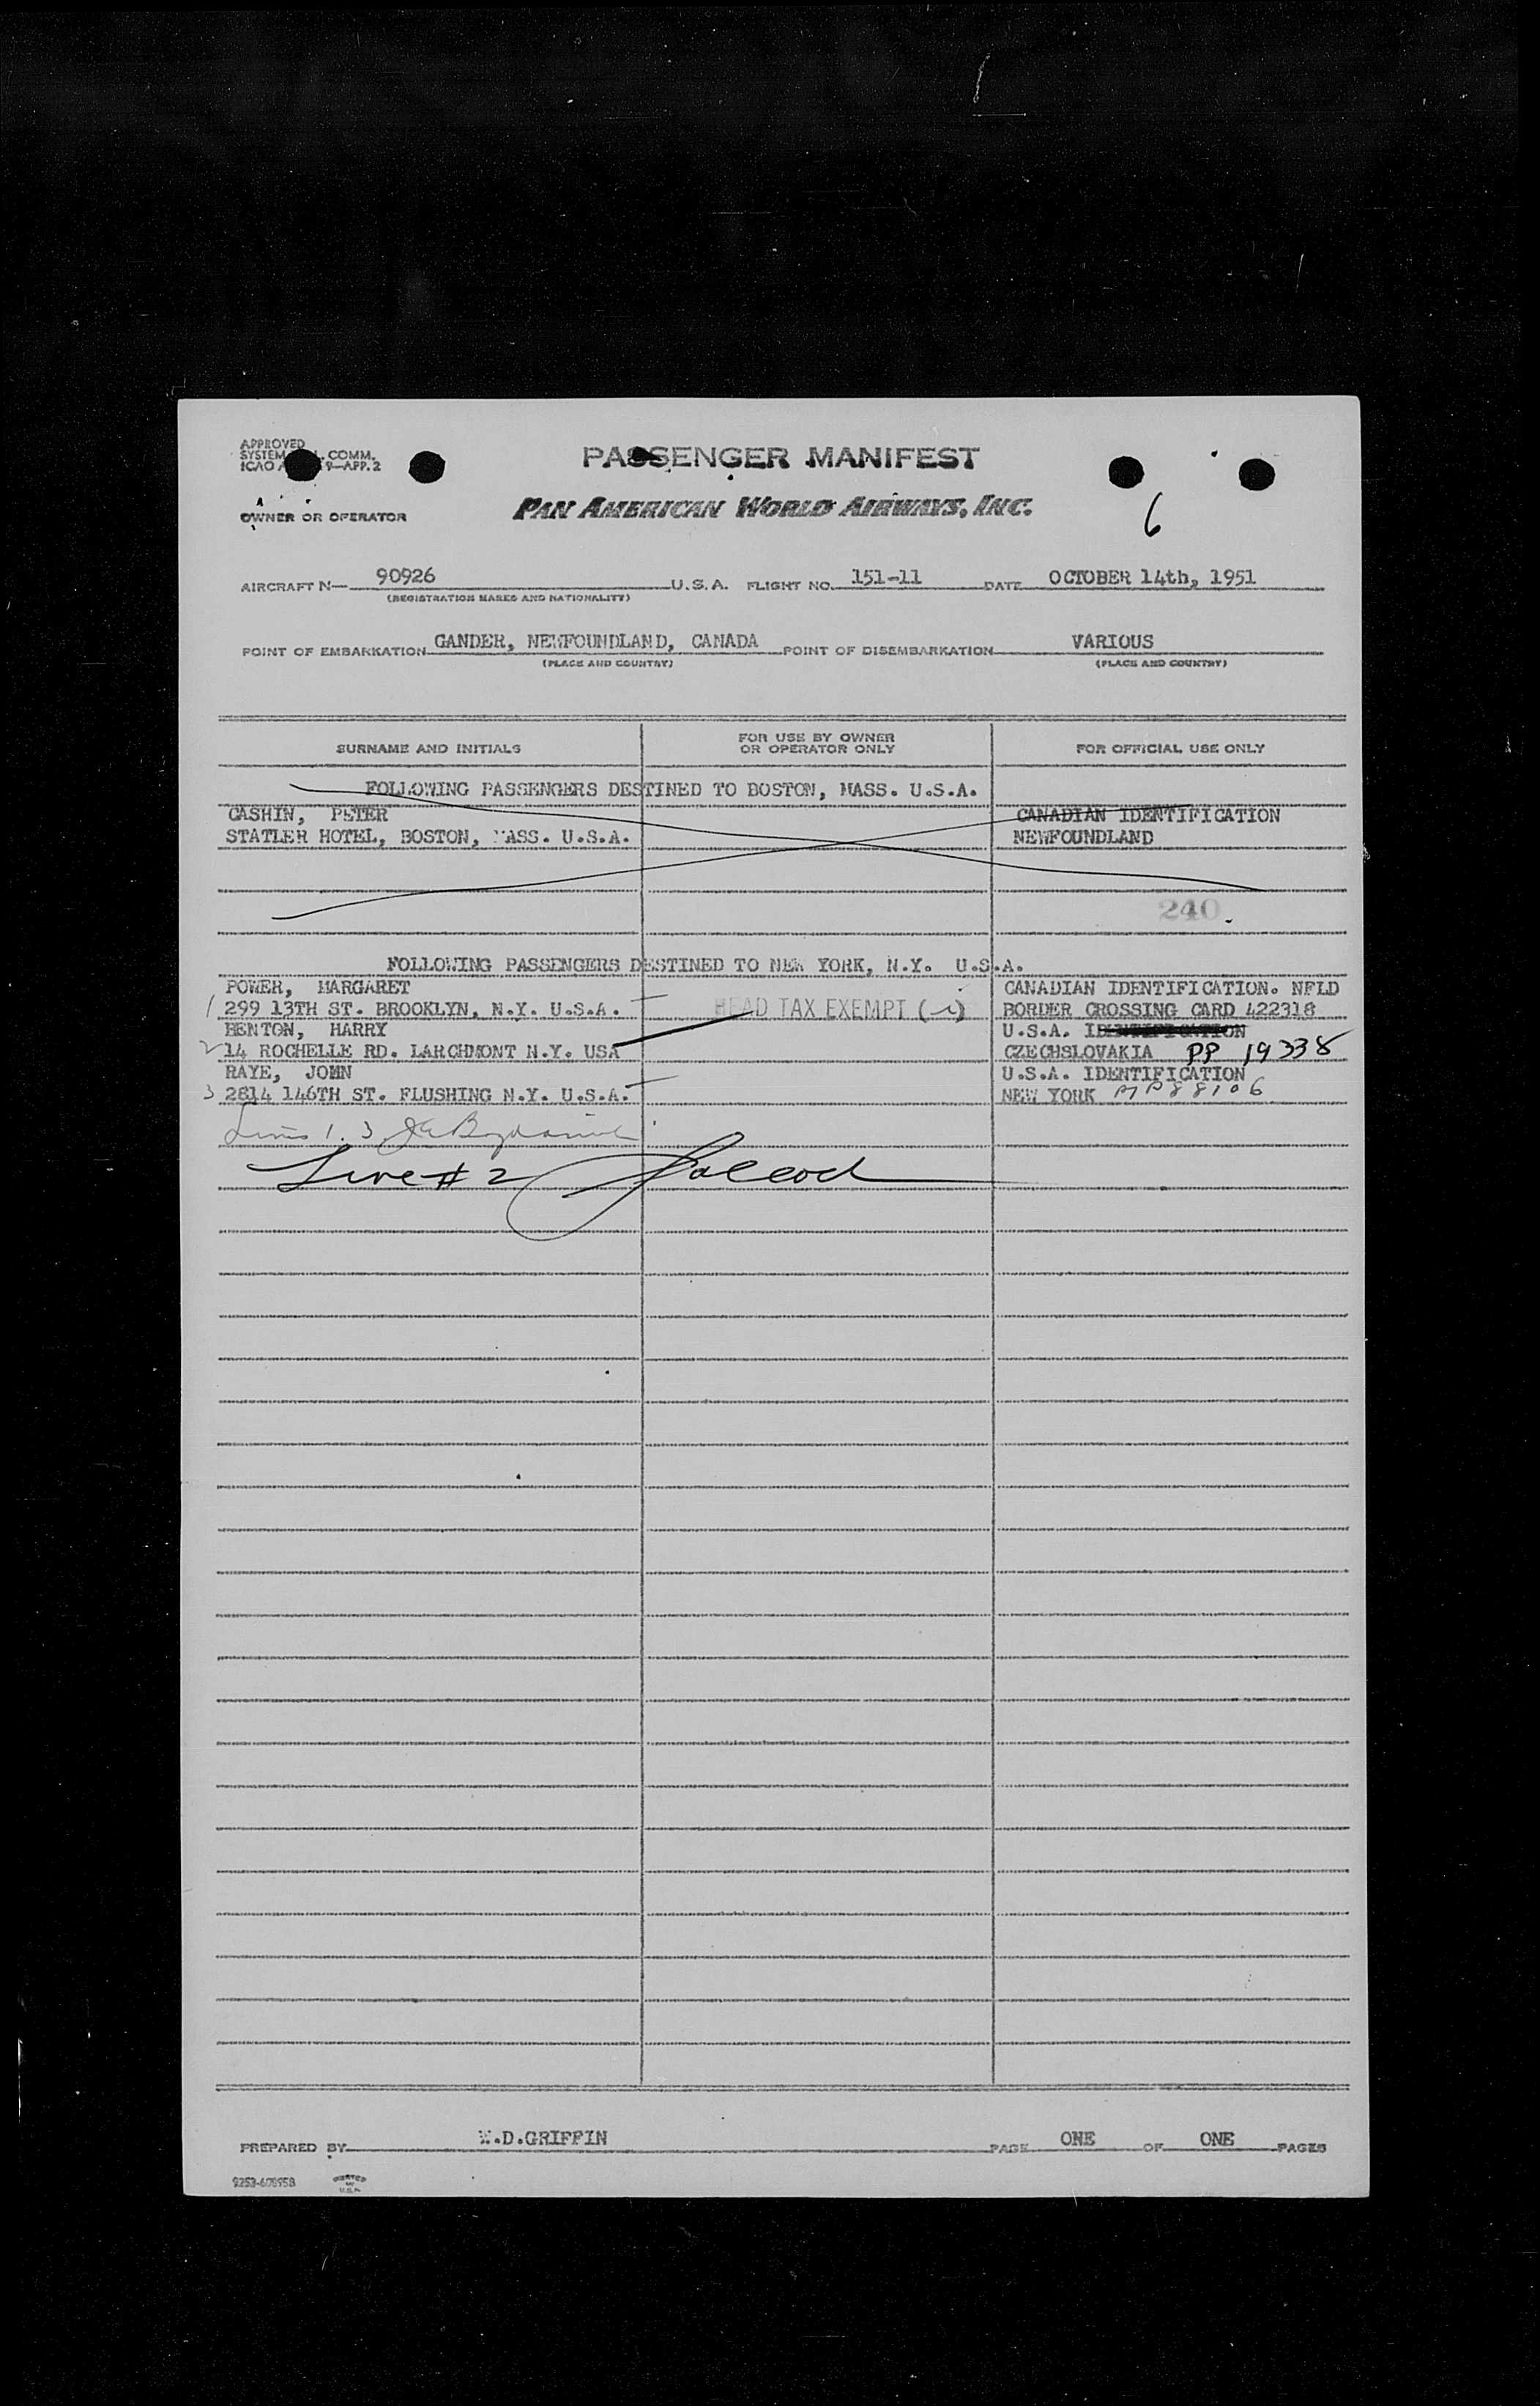 APPROVED
SYSTEM COMM.
ICAO 9—APP. 2
PASSENGER MANIFEST
OWNER OR OPERATOR
PAN AMERICAN WORLD AIRWAYS, INC.
6
AIRCRAFT N— 90926 U.S.A. FLIGHT NO. 151-11 DATE OCTOBER 14th, 1951
(REGISTRATION MARKS AND NATIONALITY)
POINT OF EMBARKATION GANDER, NEWFOUNDLAND, CANADA POINT OF DISEMBARKATION VARIOUS
(PLACE AND COUNTRY) (PLACE AND COUNTRY)
SURNAME AND INITIALS
FOR USE BY OWNER
OR OPERATOR ONLY
FOR OFFICIAL USE ONLY
FOLLOWING PASSENGERS DESTINED TO BOSTON, MASS. U.S.A.
CASHIN, PETER CANADIAN IDENTIFICATION
STATLER HOTEL, BOSTON, MASS. U.S.A. NEWFOUNDLAND
240
FOLLOWING PASSENGERS DESTINED TO NEW YORK, N.Y. U.S.A.
POWER, MARGARET CANADIAN IDENTIFICATION. NFLD
1 299 13TH ST. BROOKLYN, N.Y. U.S.A. — HEAD TAX EXEMPT (-i) BORDER CROSSING CARD 422318
BENTON, HARRY U.S.A. IDENTIFICATION
2 14 ROCHELLE RD. LARCHMONT N.Y. USA CZECHSLOVAKIA PP 19338
RAYE, JOHN U.S.A. IDENTIFICATION
3 2814 146TH ST. FLUSHING N.Y. U.S.A. — NEW YORK 88106
Lines 1. 3
Line # 2
PREPARED BY W.D.GRIFFIN PAGE ONE OF ONE PAGES
9253-608958 PRINTED
IN
U.S.A.